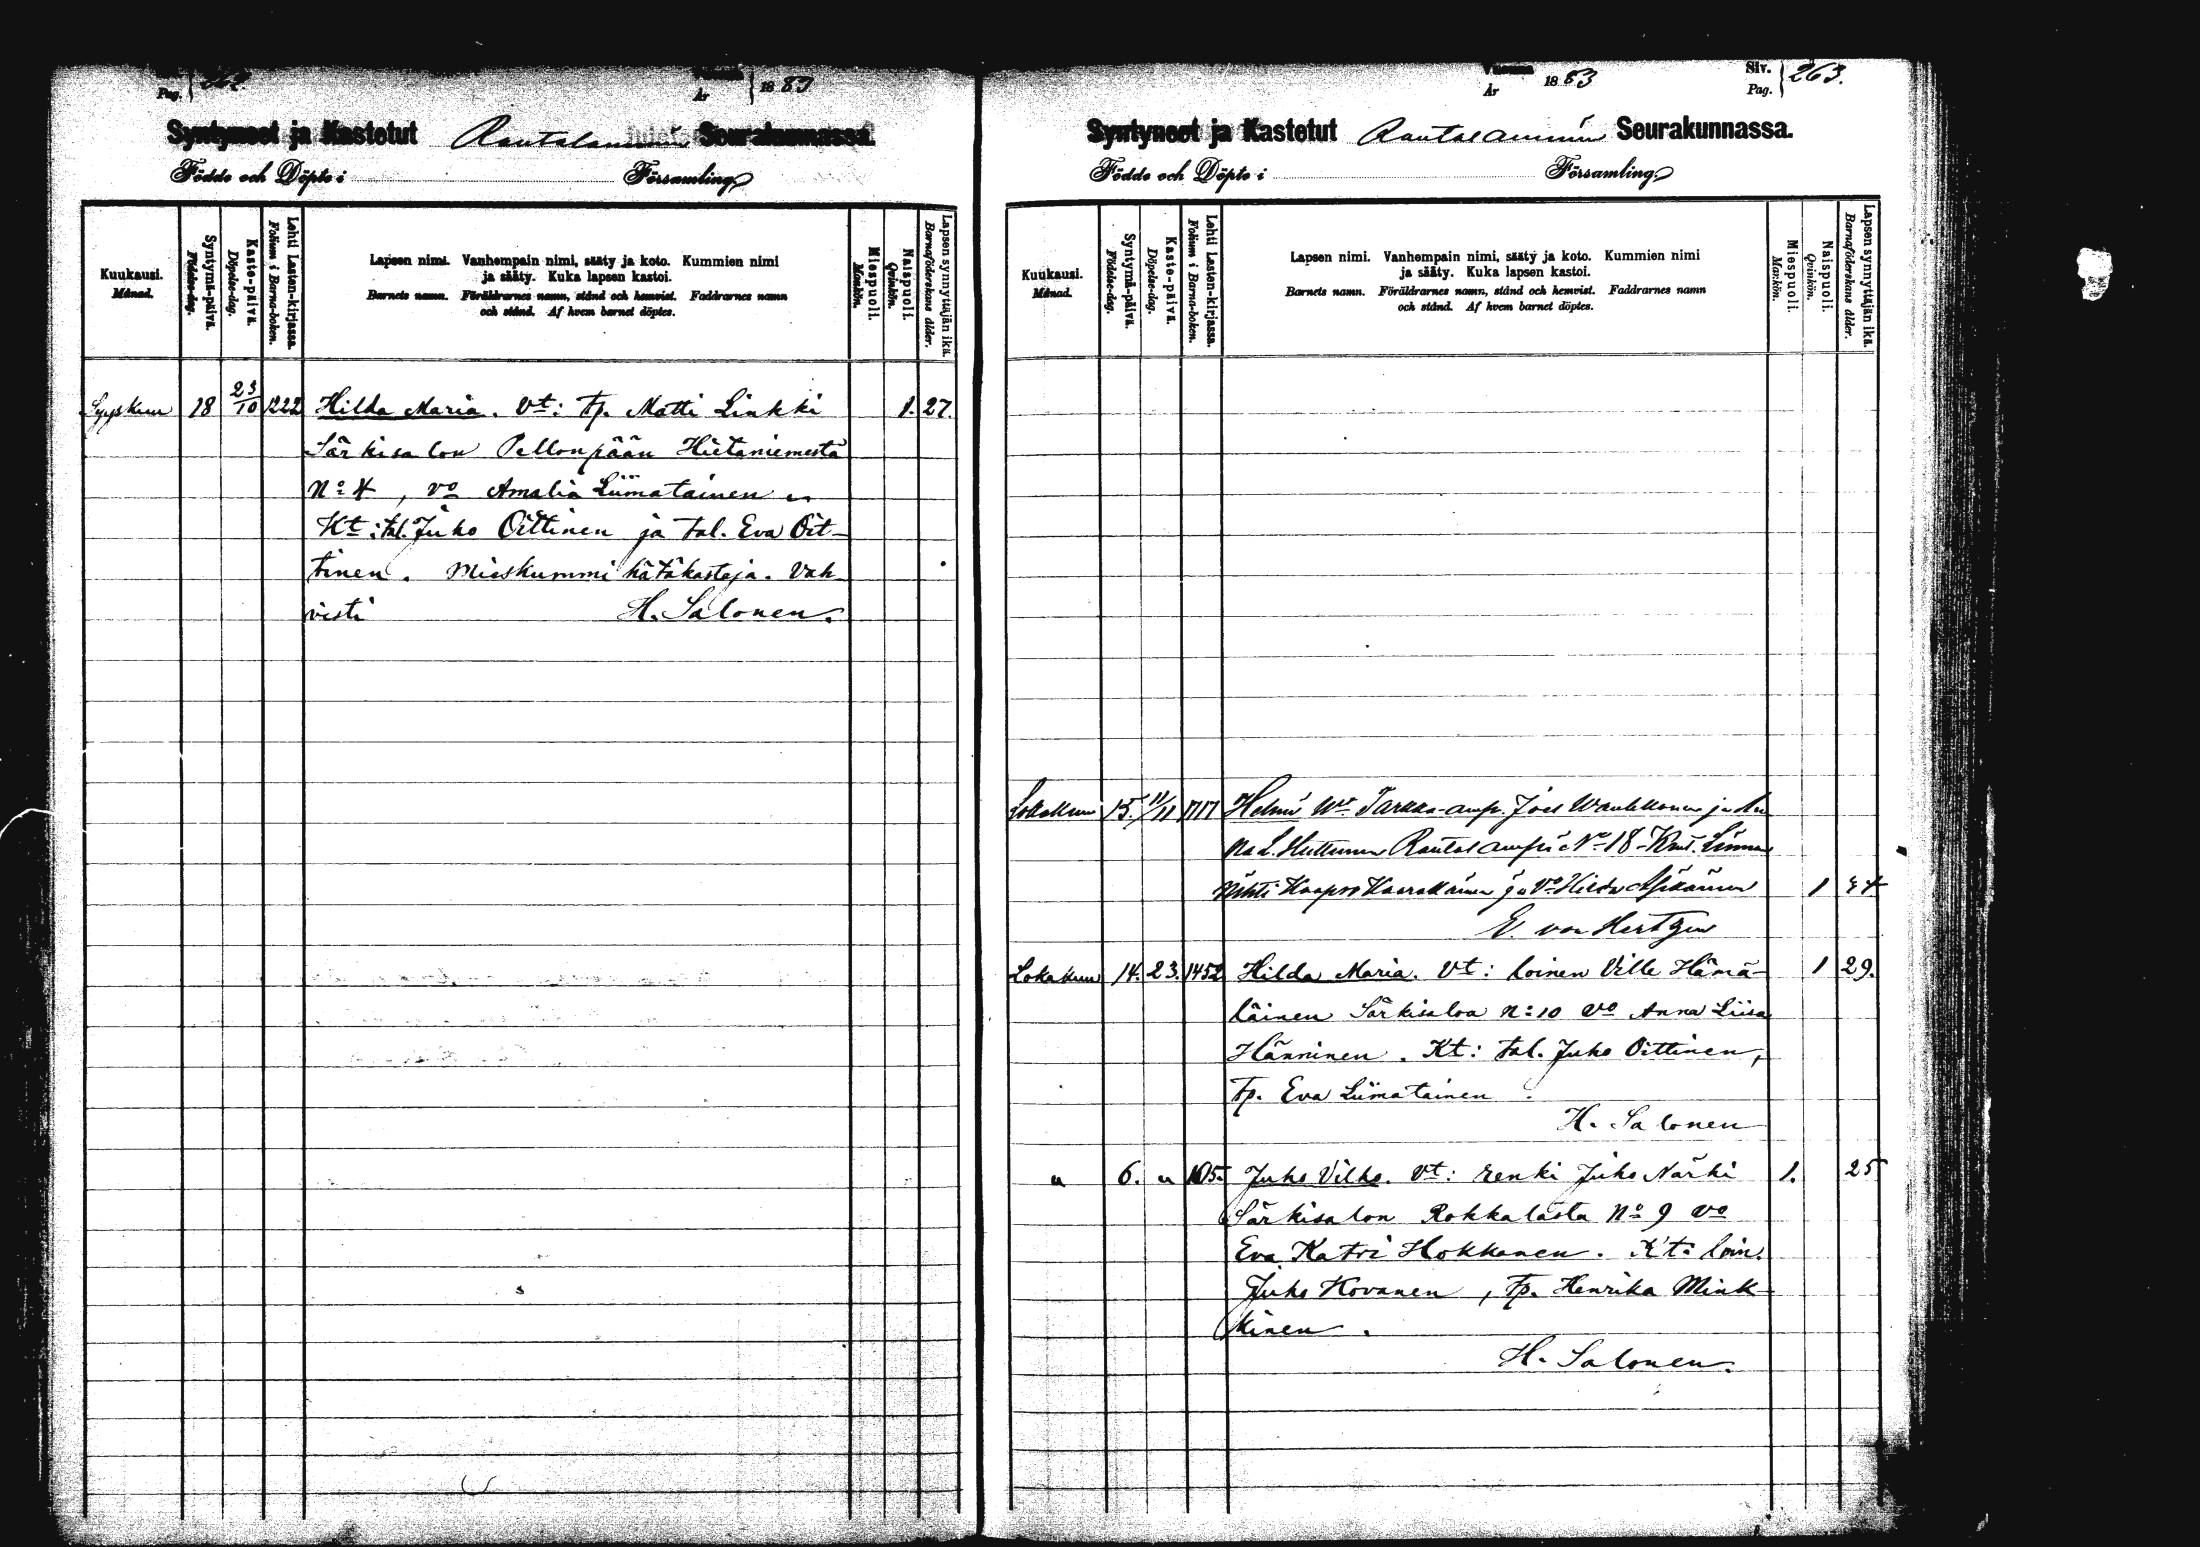 Pag. 262.
År 1883
Syntyneet ja Kastetut Rautalammin Seurakunnassa.
Födde och Döpte i Församling
Kuukausi.
Månad.
Syntymä-päivä.
Födelse-dag.
Kaste-päivä.
Döpelse-dag.
Lehti Lasten-kirjassa.
Folium i Barna-boken.
Lapsen nimi. Vanhempain nimi, sääty ja koto. Kummien nimi
ja sääty. Kuka lapsen kastoi.
Barnets namn. Föräldrarnes namn, stånd och hemvist. Faddrarnes namn
och stånd. Af hvem barnet döptes.
Miespuoli.
Mankön.
Naispuoli.
Qvinkön.
Lapsen synnyttäjän ikä.
Barnaföderskans ålder.
Syyskuu 18 23/10 1222 Hilda Maria. Vt: tp. Matti Linkki 1. 27.
Särkisalon Pellonpään Hietaniemestä
No 4, vo Amalia Liimatainen
Kt: tal. Juho Oittinen ja tal. Eva Oit-
tinen. Mieskummi hätäkasteja. Vah-
visti H. Salonen.
År 1883
Siv.
Pag. 263.
Syntyneet ja Kastetut Rautalammin Seurakunnassa.
Födde och Döpte i Församling
Kuukausi.
Månad.
Syntymä-päivä.
Födelse-dag.
Kaste-päivä.
Döpelse-dag.
Lehti Lasten-kirjassa.
Folium i Barna-boken.
Lapsen nimi. Vanhempain nimi, sääty ja koto. Kummien nimi
ja sääty. Kuka lapsen kastoi.
Barnets namn. Föräldrarnes namn, stånd och hemvist. Faddrarnes namn
och stånd. Af hvem barnet döptes.
Miespuoli.
Mankön.
Naispuoli.
Qvinkön.
Lapsen synnyttäjän ikä.
Barnaföderskans ålder.
Lokakuu 15. 11/11 Helmi Joel ja An
na L. Huttunen Rautalampi No 18
Kaapro ja Vo Hilda 1
E. von Hertzen
Lokakuu 14. 23. 1452 Hilda Maria. Vt: loinen Ville Hämä- 1 29.
läinen Särkisaloa n:10 vo Anna Liisa
Hänninen. Kt: tal. Juho Oittinen,
tp. Eva Liimatainen.
H. Salonen
" 6. " 105. Juho Vilho. Vt: renki Juho Närhi 1. 25
Särkisalon Rokkalasta No 9 vo
Eva Katri Hokkanen. Kt: loin.
Juho Hovanen, tp. Henrika Mink-
kinen.
H. Salonen.